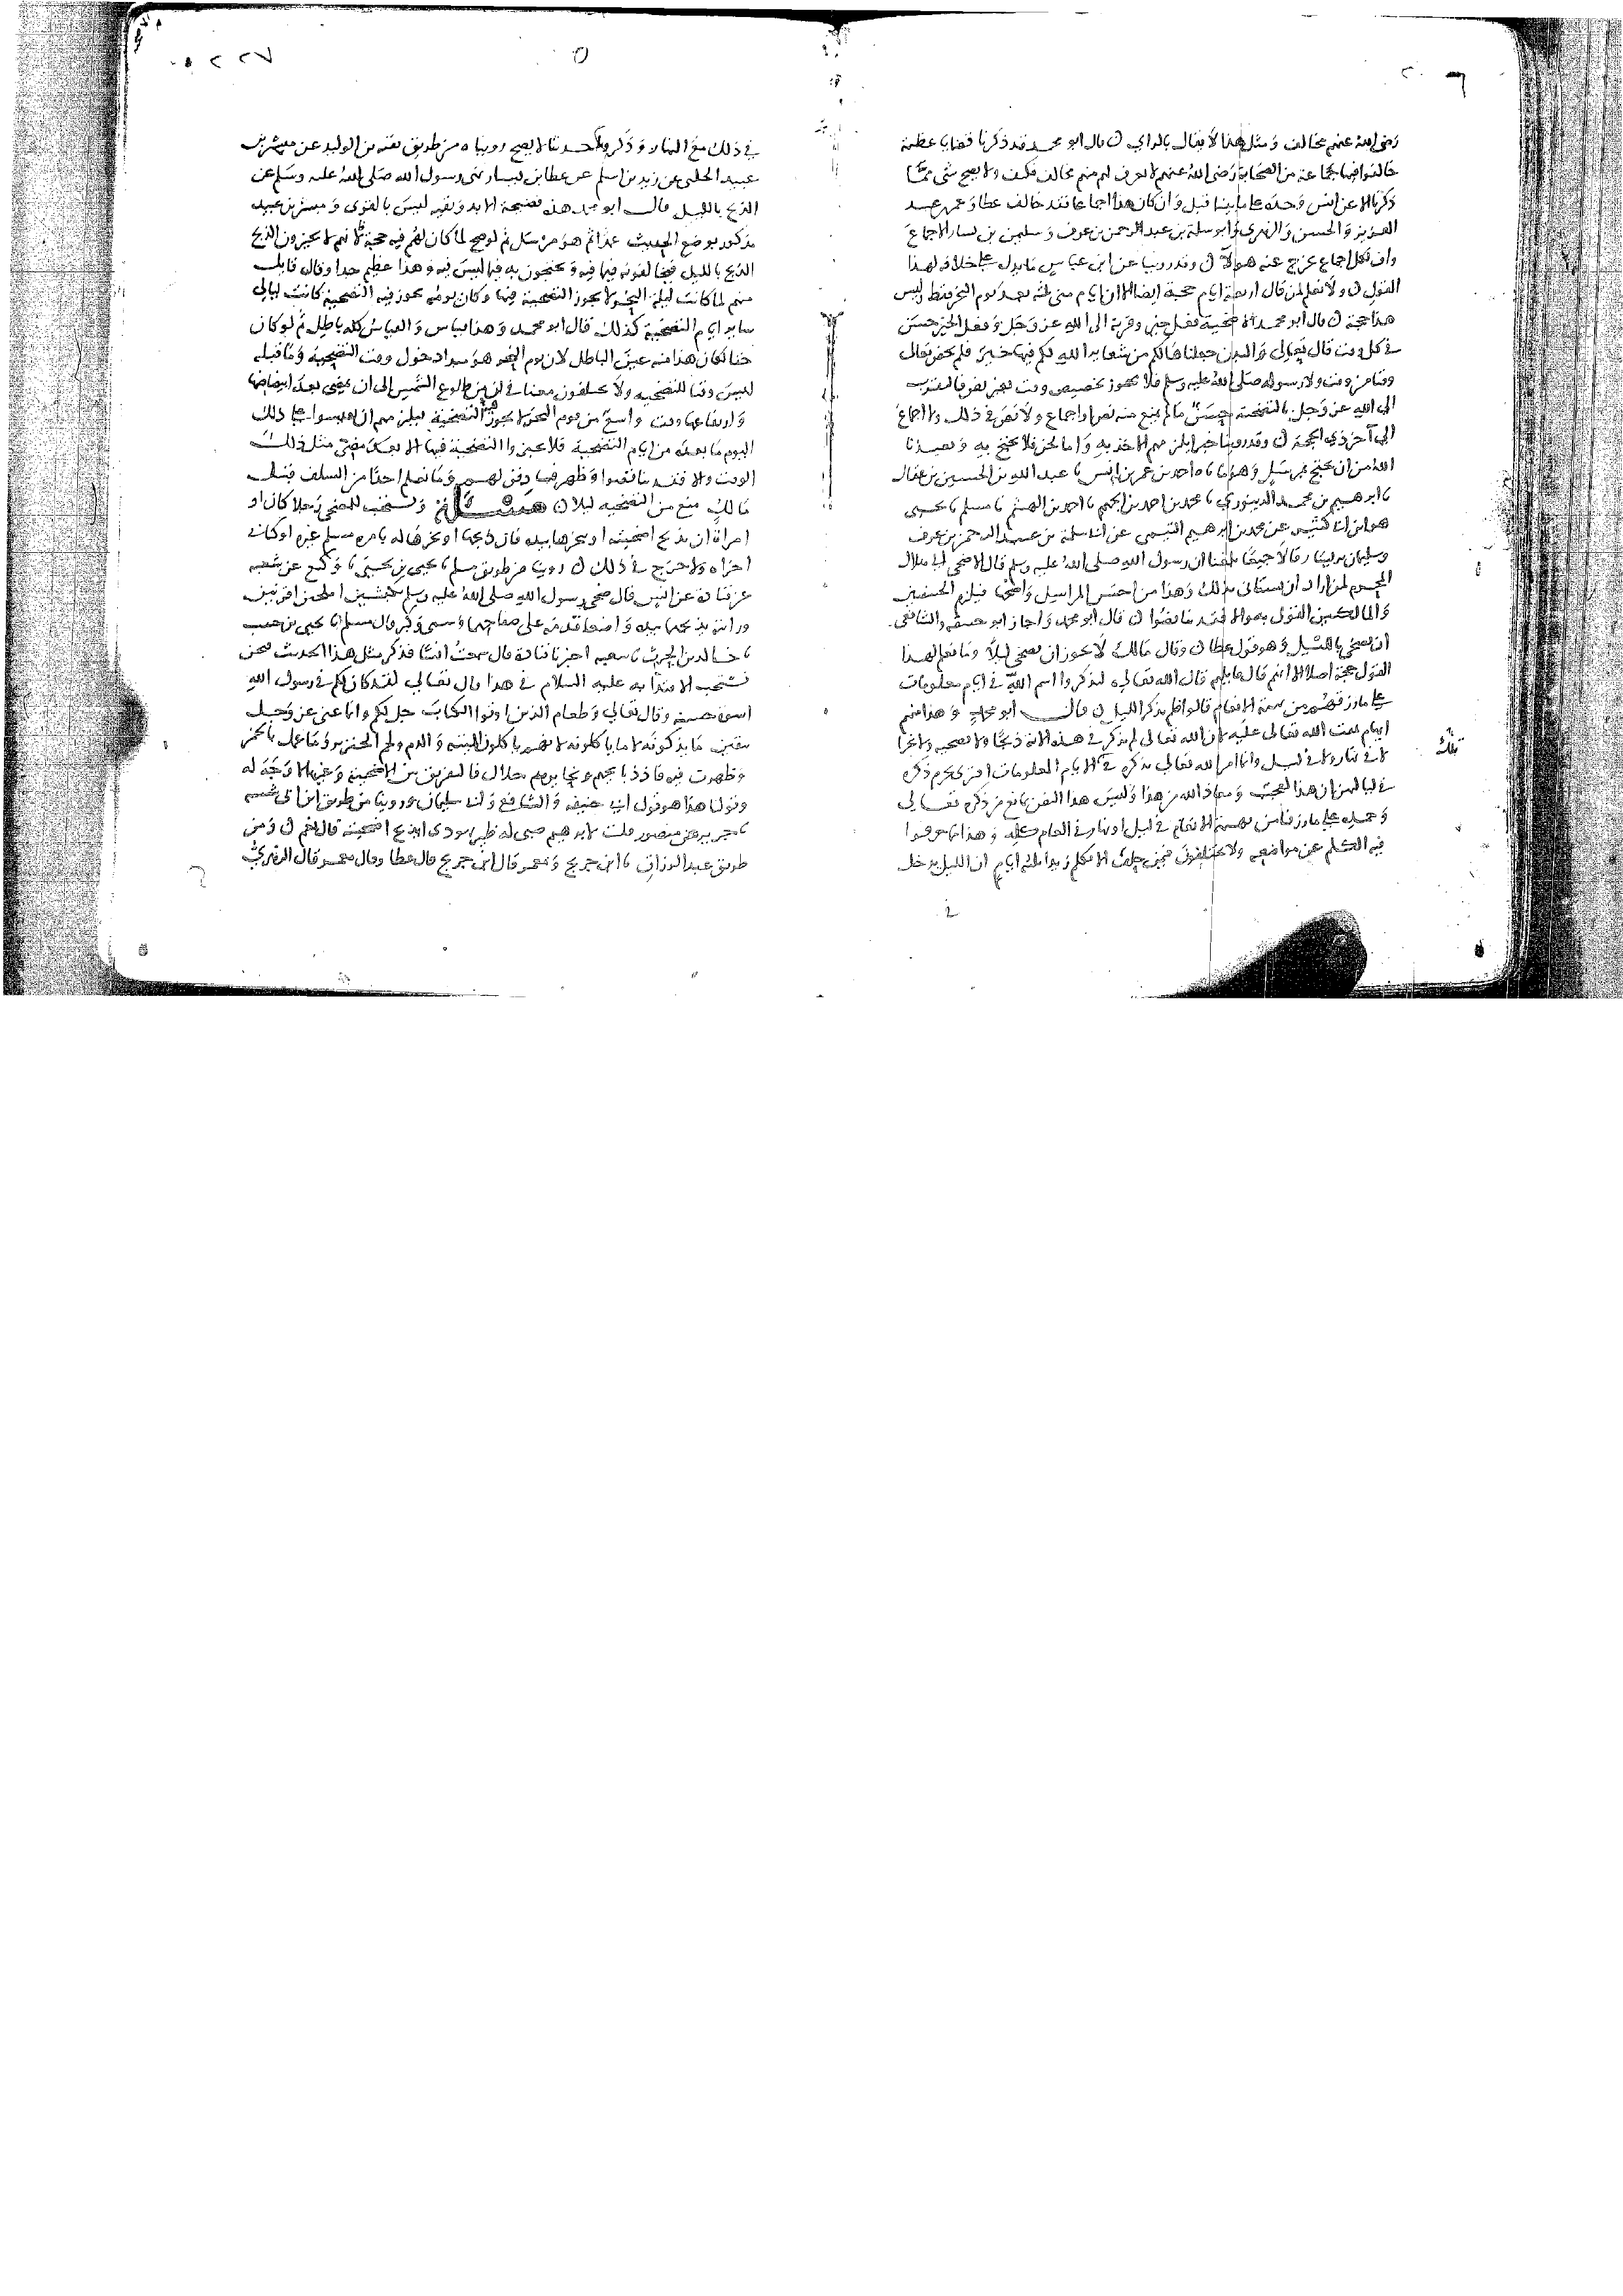 رضى الله عنهم مخالف ومثل هذا لا يقال بالراى قال ابو محمد قد ذكرنا قضايا عظيمة
خالفوا فيها جماعة من الصحابة رضى الله عنهم لا يعرف لهم منهم مخالف فكيف ولا يصح شى مما
ذكرنا الا عن انس وحده على ما بينا قبل وان كان هذا اجماعا فقد خالف عطا وعمر بن عبد
العزيز والحسن والزهرى وابو سلمة بن عبد الرحمن بن عوف وسليمن بن يسار الاجماع
واف لكل اجماع يخرج عنه هولا وقد روينا عن ابن عباس ما يدل على خلافه لهذا
القول ولا نعلم لمن قال اربعة ايام حجة ايضا الا ان ايام منى ثلثه بعد يوم النحر فقط وليس
هذا حجة قال ابو محمد الاضحية فعل خير وقربة الى الله عز وجل وفعل الخير حسن
فى كل وقت قال تعالى والبدن جعلناها لكم من شعاير الله لكم فيها خير فلم يخص تعالى
وقتا من وقت ولا رسوله صلى الله عليه وسلم فلا يجوز تخصيص وقت بغير نص فالتقرب
الى الله عز وجل بالتضحية حسن ما لم يمنع منه نص او اجماع ولا نص فى ذلك ولا اجماع
الى آخر ذى الحجة وقد روينا خبرا يلزمهم الاخذ به واما نحن فلا نحتج به ويعيذنا
الله من ان نحتج بمرسل وهو ما نا احمد بن عمر بن انس نا عبد الله بن الحسين بن عقال
نا ابرهيم بن محمد الدينورى نا محمد بن احمد بن الجهم نا احمد بن الهيثم نا مسلم نا يحيى
هو ابن ابى كثير عن محمد بن ابرهيم التيمى عن ابى سلمة بن عبد الرحمن بن عوف
وسليمان بن يسار قالا جميعا بلغنا ان رسول الله صلى الله عليه وسلم قال الاضحى الى هلال
المحرم لمن اراد ان يستانى بذلك وهذا من احسن المراسيل واصحها فيلزم الحنفيين
والمالكيين القول به والا فقد تناقضوا قال ابو محمد واجاز ابو حنيفة والشافعى
ان يضحى بالليل وهو قول عطا وقال مالك لا يجوز ان يضحى ليلا وما نعلم لهذا
القول حجة اصلا الا انهم قال قايلهم قال الله تعالى ليذكروا اسم الله فى ايام معلومات
على ما رزقهم من بهيمة الانعام قالوا فلم يذكر الليل قال ابو محمد وهذا منهم
ايهام يمقت الله تعالى عليه لان الله تعالى لم يذكر فى هذه الاية ذبحا ولا تضحية ولا نحرا
لا فى نهار ولا فى ليل وانما امر الله تعالى بذكره فى تلك الايام المعلومات افترى يحرم ذكره
فى لياليهن ان هذا لعجب ومعاذ الله من هذا وليس هذا النص بمانع من ذكره تعالى
وحمده على ما رزقنا من بهيمة الانعام فى ليل او نهار فى العام كله وهذا مما حرفوا
فيه الكلم عن مواضعه ولا يختلفون فيمن حلف الا يكلم زيدا ثلثة ايام ان الليل يدخل
فى ذلك مع النهار وذكروا حديثا لا يصح رويناه من طريق بقية بن الوليد عن مبشر بن
عبيد الحلبى عن زيد بن اسلم عن عطا بن يسار نهى رسول الله صلى الله عليه وسلم عن
الذبح بالليل قال ابو محمد هذه فضيحة الابد وبقية ليس بالقوى ومبشر بن عبيد
مذكور بوضع الحديث عمدا ثم هو مرسل ثم لو صح لما كان لهم فيه حجة لانهم لا يجيزون الذبح
الذبح بالليل فيخالفونه فيما فيه ويحتجون به فيما ليس فيه وهذا عظيم جدا وقال قايل
منهم لما كانت ليلة النحر لا يجوز التضحية فيها وكان يومه يجوز فيه التضحية كانت ليالى
ساير ايام التضحية كذلك قال ابو محمد وهذا قياس والقياس كله باطل ثم لو كان
حقا لكان هذا منه عين الباطل لان يوم النحر هو مبدا دخول وقت التضحية وما قبله
ليس وقتا للتضحيه ولا يختلفون معنا فى ان من طلوع الشمس الى ان يمضى بعد ابيضاضها
وارتفاعها وقت واسع من يوم النحر لا يجوز فيه التضحية فيلزمهم ان يقيسوا على ذلك
اليوم ما بعده من ايام التضحية فلا يجيزوا التضحية فيها الا بعد مضى مثل ذلك
الوقت والا فقد تناقضوا وظهر فساد قولهم وما نعلم احدا من السلف قبل
مالك منع من التضحيه ليلا مسالة ونستحب للمضحى رجلا كان او
امراة ان يذبح اضحيته او ينحرها بيده فان ذبحها او نحرها له بامره مسلم غيره او كتابى
اجزاه ولا حرج فى ذلك روينا من طريق مسلم نا يحيى بن يحيى نا وكيع عن شعبة
عن قتادة عن انس قال ضحى رسول الله صلى الله عليه وسلم بكبشين املحين اقرنين
ورايته يذبحهما بيده واضعا قدمه على صفاحهما وسمى وكبر قال مسلم نا يحيى بن حبيب
نا خالد بن الحرث نا سعيد اخبرنا قتادة قال سمعت انسا فذكر مثل هذا الحديث فنحن
نستحب الاقتدا به عليه السلام فى هذا قال تعالى لقد كان لكم فى رسول الله
اسوة حسنة وقال تعالى وطعام الذين اوتوا الكتاب حل لكم وانما عنى عز وجل
بيقين ما يذكونه لا ما ياكلونه لانهم ياكلون الميتة والدم ولحم الخنزير وما عمل بالخمر
وظهرت فيه فاذ ذبايحهم ونحايرهم حلال فالتفريق بين الاضحية وغيرها لا وجه له
وقولنا هذا هو قول ابى حنيفة والشافعى وابى سليمان وروينا من طريق ابن ابى شيبة
نا جرير عن منصور قلت لابرهيم صبى له ظير يهودى ايذبح اضحيته قال نعم ومن
طريق عبد الرزاق نا ابن جريج ومعمر قال ابن جريج قال عطا وقال معمر قال الزهرى